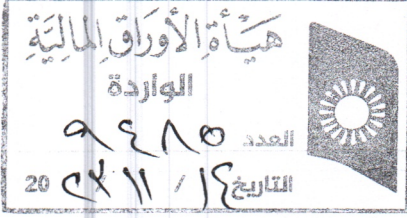 هَيْأَةِ الأَوْرَاقِ المَالِيَّةِ
الواردة
العدد ٩٤٨٥
التاريخ ١٤ / ١١ / 20